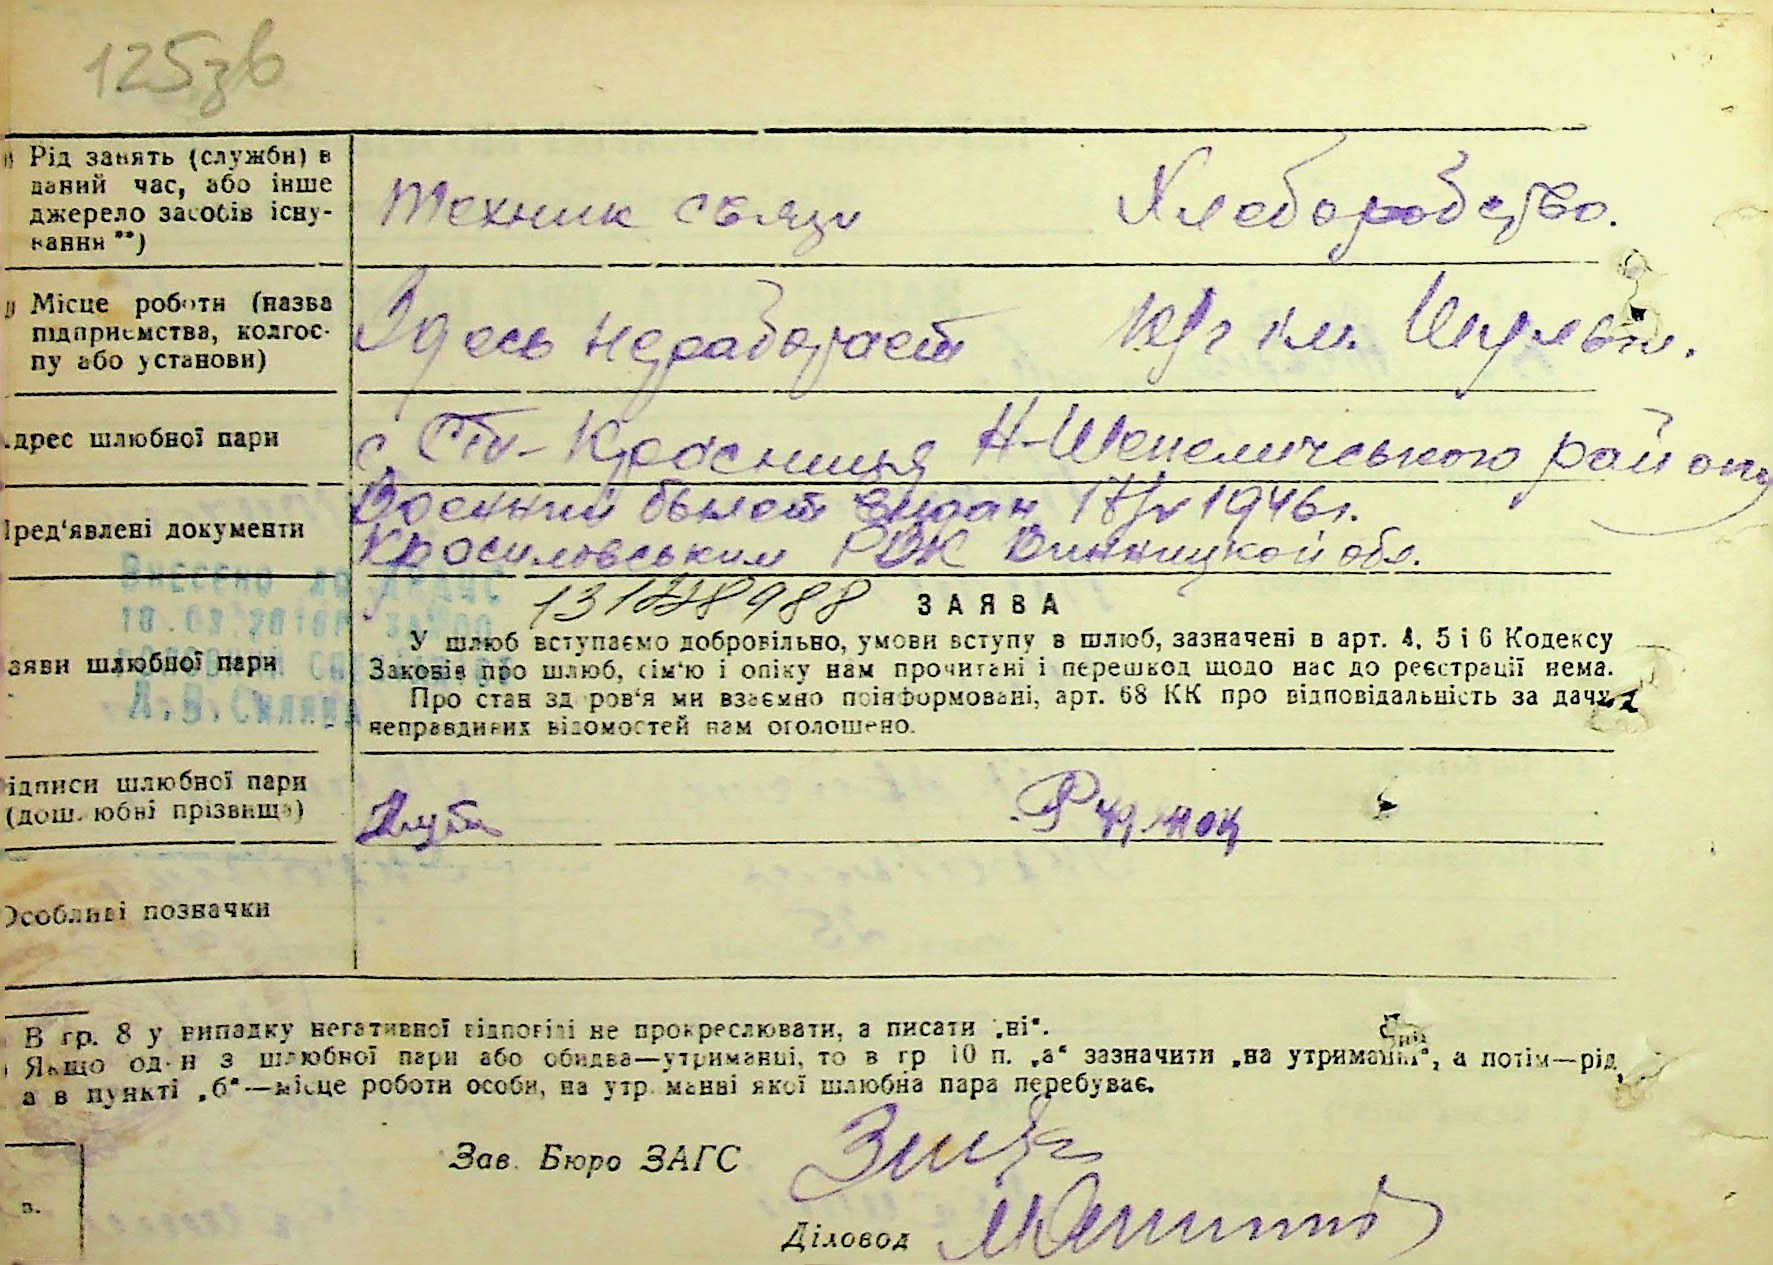 125зв
Рід занять (служби) в
даний час, або інше
джерело засобів існу-
вання **)
техник связи
Хлеборобство.
Місце роботи (назва
підприємства, колгос-
пу або установи)
Здесь неработает
к/г им.
дрес шлюбної пари
с Ст-Красниця Н-Шепеличського району
Пред'явлені документи
Военний билет видан 17/IV 1946г.
РВК Винницкой обл.
Внесено до
18.02.2016
А.В.
13148988
ЗАЯВА
аяви шлюбної пари
У шлюб вступаємо добровільно, умови вступу в шлюб, зазначені в арт. 4, 5 і 6 Кодексу
Законів про шлюб, сім'ю і опіку нам прочитані і перешкод щодо нас до реєстрації нема.
Про стан здоров'я ми взаємно поінформовані, арт. 68 КК про відповідальність за дачу
неправдивих відомостей нам оголошено.
ідписи шлюбної пари
(дошлюбні прізвища)
Особливі позначки
В гр. 8 у випадку негативної відповіді не прокреслювати, а писати „ні“.
Якщо один з шлюбної пари або обидва—утриманці, то в гр 10 п. „а“ зазначити „на утриманні“, а потім—рід
а в пункті „б“—місце роботи особи, на утриманні якої шлюбна пара перебуває.
Зав. Бюро ЗАГС
Діловод